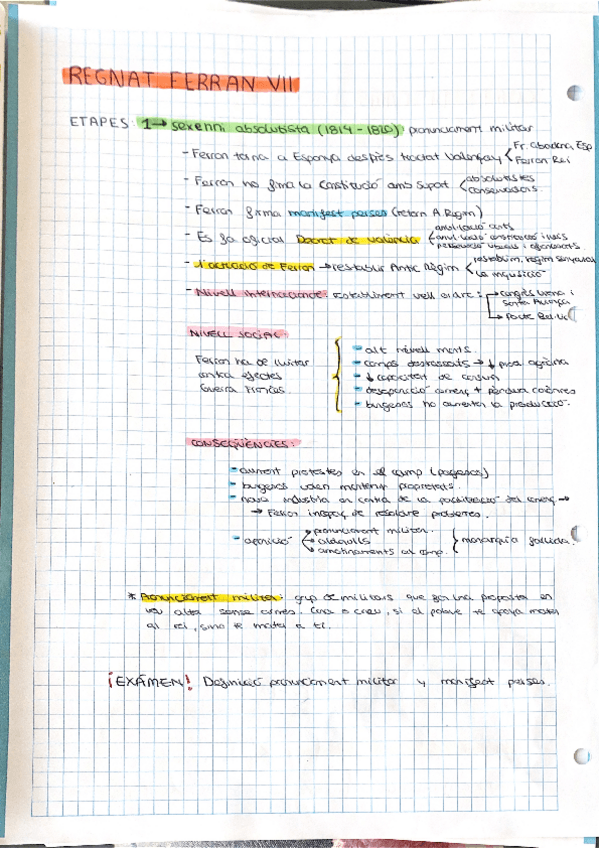 REGNAT FERRAN VII
ETAPES: 1→ sexenni absolutista (1814-1820): pronunciament militar
- Ferran torna a Espanya després tractat Valençay Fr. abandona Esp
Ferran Rei
- Ferran no firma la Constitució amb suport absolutistes
conservadors.
- Ferran firma manifest perses (retorn A. Règim)
- Es fa oficial Decret de València anul·lació corts
anul·lació
persecució liberals i afrancesats.
- L'actuació de Ferran → restablir Antic Règim restablim. règim senyorial
la inquisició
- Nivell Internacional: Establiment vell ordre: → congrés Viena i
Santa Aliança
→ Pacte
NIVELL SOCIAL:
Ferran ha de lluitar
contra efectes
Guerra Francès.
- alt nivell morts.
- camps destrossats → ↓ prod. agrària
- ↓ capacitat de consum
- desaparició comerç + pèrdua colònies
- burgesos no augmenten la producció.
CONSEQÜÈNCIES:
- augment protestes en el camp (pagesos)
- burgesos volen mantenir propietats.
- nova indústria en contra de la del comerç →
→ Ferran incapaç de resoldre problemes.
- aparició pronunciament militar.
aldarulls
amotinaments al camp.
monarquia fallida.
* Pronunciament militar: grup de militars que fan una proposta en
veu alta sense armes. Cara o creu, si el poble te apoya mates
al rei, sino te mata a ti.
¡EXÁMEN! Definició pronunciament militar y manifest perses.